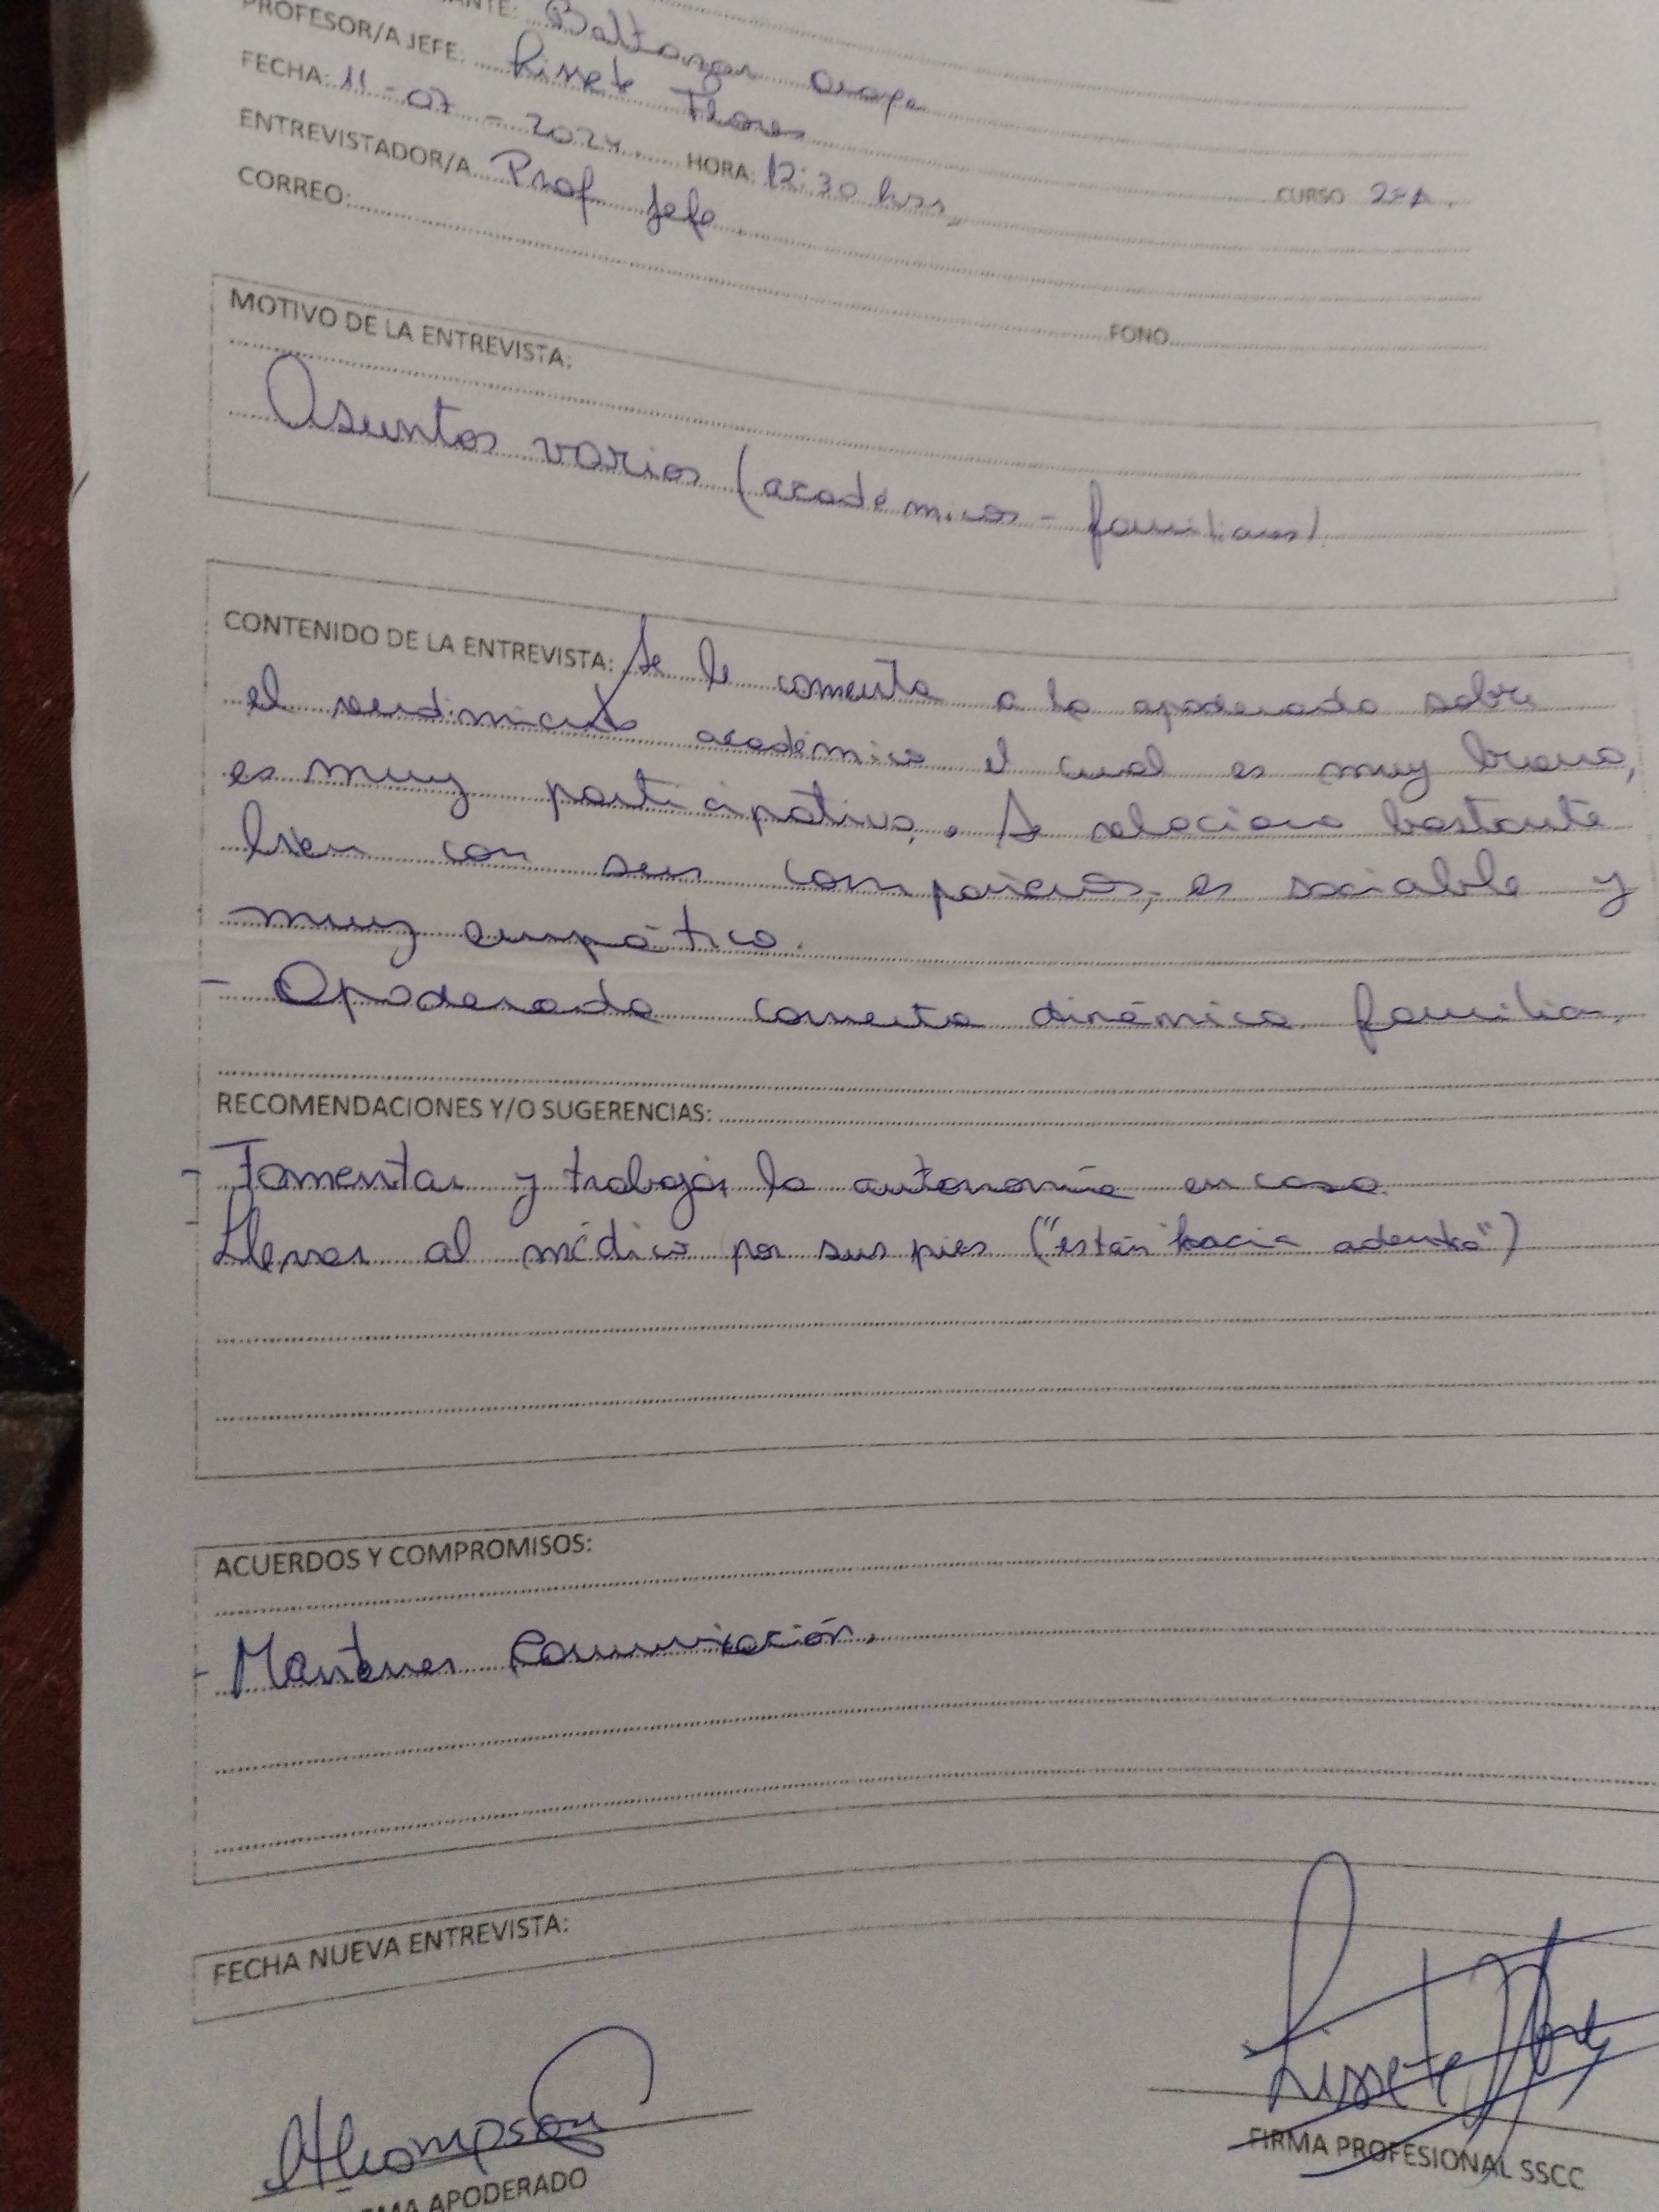 ANTE: Baltazar Araya
PROFESOR/A JEFE: Lissete Flores
FECHA: 11-07-2024. HORA: 12:30 hrs, CURSO 2ºA.
ENTREVISTADOR/A Prof Jefe.
CORREO: FONO
MOTIVO DE LA ENTREVISTA:
Asuntos varios (académicos - familiares).
CONTENIDO DE LA ENTREVISTA: Se le comenta a la apoderada sobre
el rendimiento académico el cual es muy bueno,
es muy participativo. Se relaciona bastante
bien con sus compañeros, es sociable y
muy empático.
- Apoderada comenta dinámica familiar.
RECOMENDACIONES Y/O SUGERENCIAS:
- Fomentar y trabajar la autonomía en casa.
- Llevar al médico por sus pies ("están hacia adentro")
ACUERDOS Y COMPROMISOS:
- Mantener comunicación.
FECHA NUEVA ENTREVISTA:
AThompson Lissete Flores
FIRMA PROFESIONAL SSCC
MA APODERADO